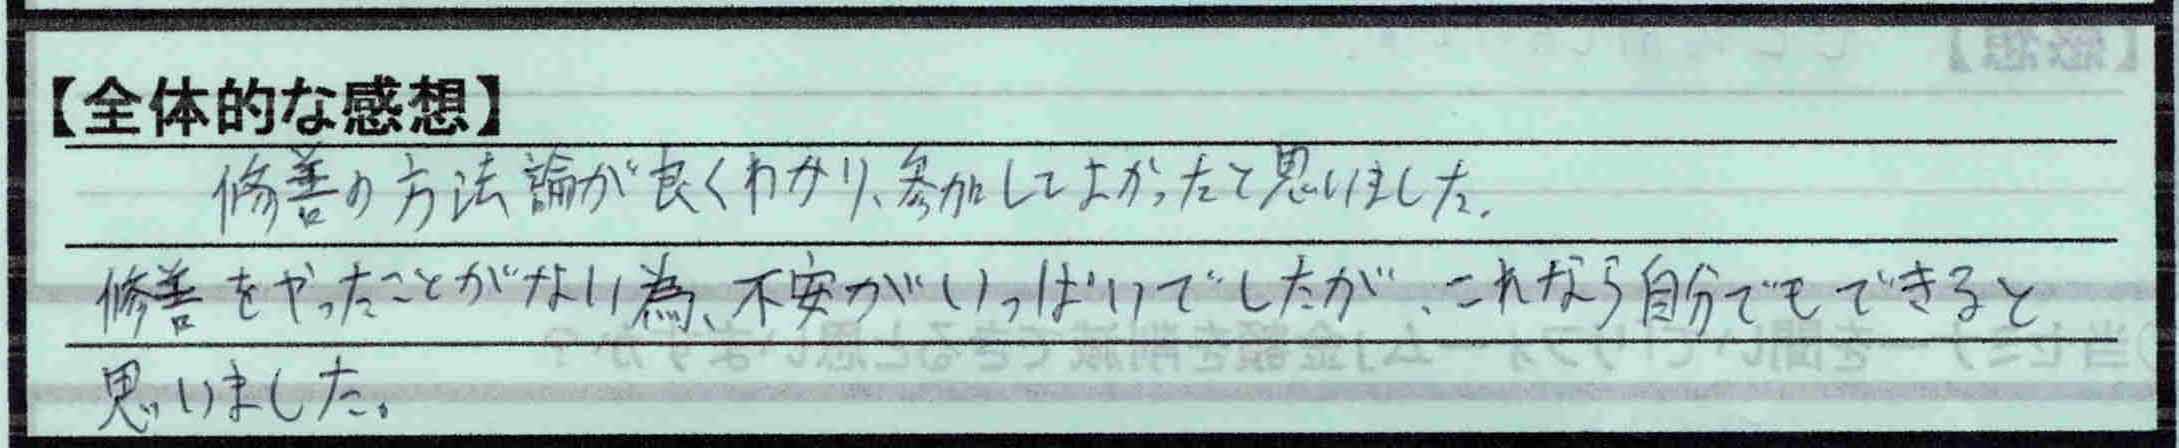 【全体的な感想】
修善の方法論が良くわかり、参加してよかったと思いました。
修善をやったことがない為、不安がいっぱいでしたが、これなら自分でもできると
思いました。